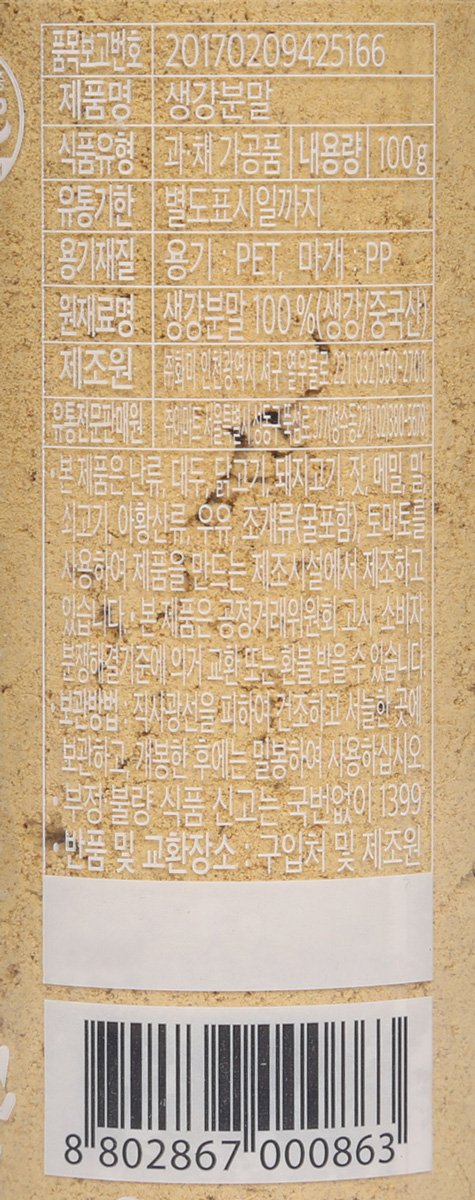 품목보고번호 20170209425166
제품명 생강분말
식품유형 과·채 가공품 내용량 100g
유통기한 별도표시일까지
용기재질 용기 : PET, 마개 : PP
원재료명 생강분말 100 %(생강/중국산)
제조원 인천광역시 서구
유통전문판매원
·본 제품은 난류, 대두, 닭고기, 돼지고기, 잣, 메밀, 밀
쇠고기, 아황산류, 우유, 조개류(굴포함), 토마토를
사용하여 제품을 만드는 제조시설에서 제조하고
있습니다. ·본 제품은 공정거래위원회 고시 소비자
분쟁해결기준에 의거 교환 또는 환불 받을 수 있습니다
·보관방법 : 직사광선을 피하여 건조하고 서늘한 곳에
보관하고, 개봉한 후에는 밀봉하여 사용하십시오
·부정·불량 식품 신고는 국번없이 1399
·반품 및 교환장소 : 구입처 및 제조원
8 802867 000863